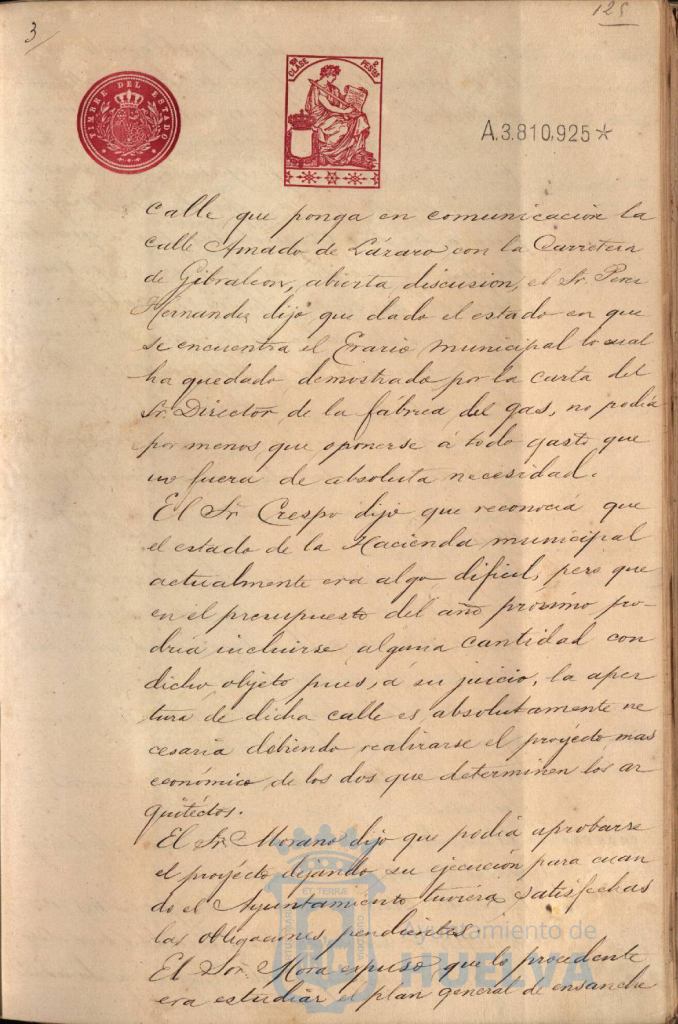 3
125
TIMBRE DEL ESTADO
CLASE
PESETAS
A.3.810,925*
calle que ponga en comunicación la
calle Amado de Lázaro con la Carretera
de Gibraleon, abierta discusion, el Sr. Perez
Hernandez dijo que dado el estado en que
se encuentra el Erario municipal lo cual
ha quedado demostrado por la carta del
Sr. Director de la fábrica del gas, no podia
por menos que oponerse á todo gasto que
no fuera de absoluta necesidad.
El Sr. Crespo dijo que reconociá que
el estado de la Hacienda municipal
actualmente era algo dificil, pero que
en el presupuesto del año proximo po-
driá incluirse alguna cantidad con
dicho objeto pues, á su juicio, la aper
tura de dicha calle es absolutamente ne
cesaria debiendo realizarse el proyecto mas
económico de los dos que determinen los ar
quitectos.
El Sr. Morano dijo que podiá aprobarse
el proyecto dejando su ejecución para cuan
do el Ayuntamiento tuviera satisfechas
las obligaciones pendientes.
El Sor. Mora expuso que lo procedente
era estudiar el plan general de ensanche
Ayuntamiento de
HUELVA